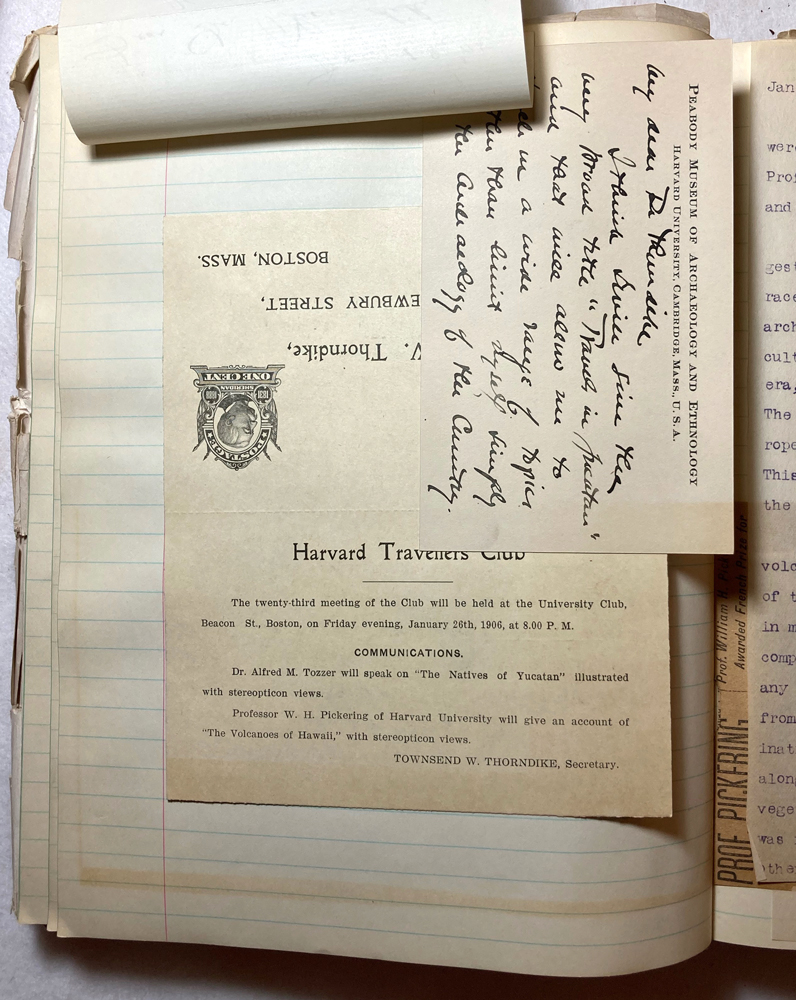 PEABODY MUSEUM OF ARCHAEOLOGY AND ETHNOLOGY
HARVARD UNIVERSITY, CAMBRIDGE, MASS., U. S. A.
My dear Dr Thorndike
I think I will give the
very broad title "Travels in Yucatan"
and that will allow me to
in a wide range of topics
than limit myself simply
the Archaeology of the Country.
POSTAGE
ONE CENT
V. Thorndike,
EWBURY STREET,
BOSTON, MASS.
Harvard Travellers Club
The twenty-third meeting of the Club will be held at the University Club,
Beacon St., Boston, on Friday evening, January 26th, 1906, at 8.00 P. M.
COMMUNICATIONS.
Dr. Alfred M. Tozzer will speak on "The Natives of Yucatan" illustrated
with stereopticon views.
Professor W. H. Pickering of Harvard University will give an account of
"The Volcanoes of Hawaii," with stereopticon views.
TOWNSEND W. THORNDIKE, Secretary.
PROF PICKERING
Prof. William H. Pick
Awarded French Prize for
Jan
were
Prof
and
gest
race
arch
cult
era,
The
rope
This
the
volc
of t
in m
comp
any
from
inat
along
vege
was
othe